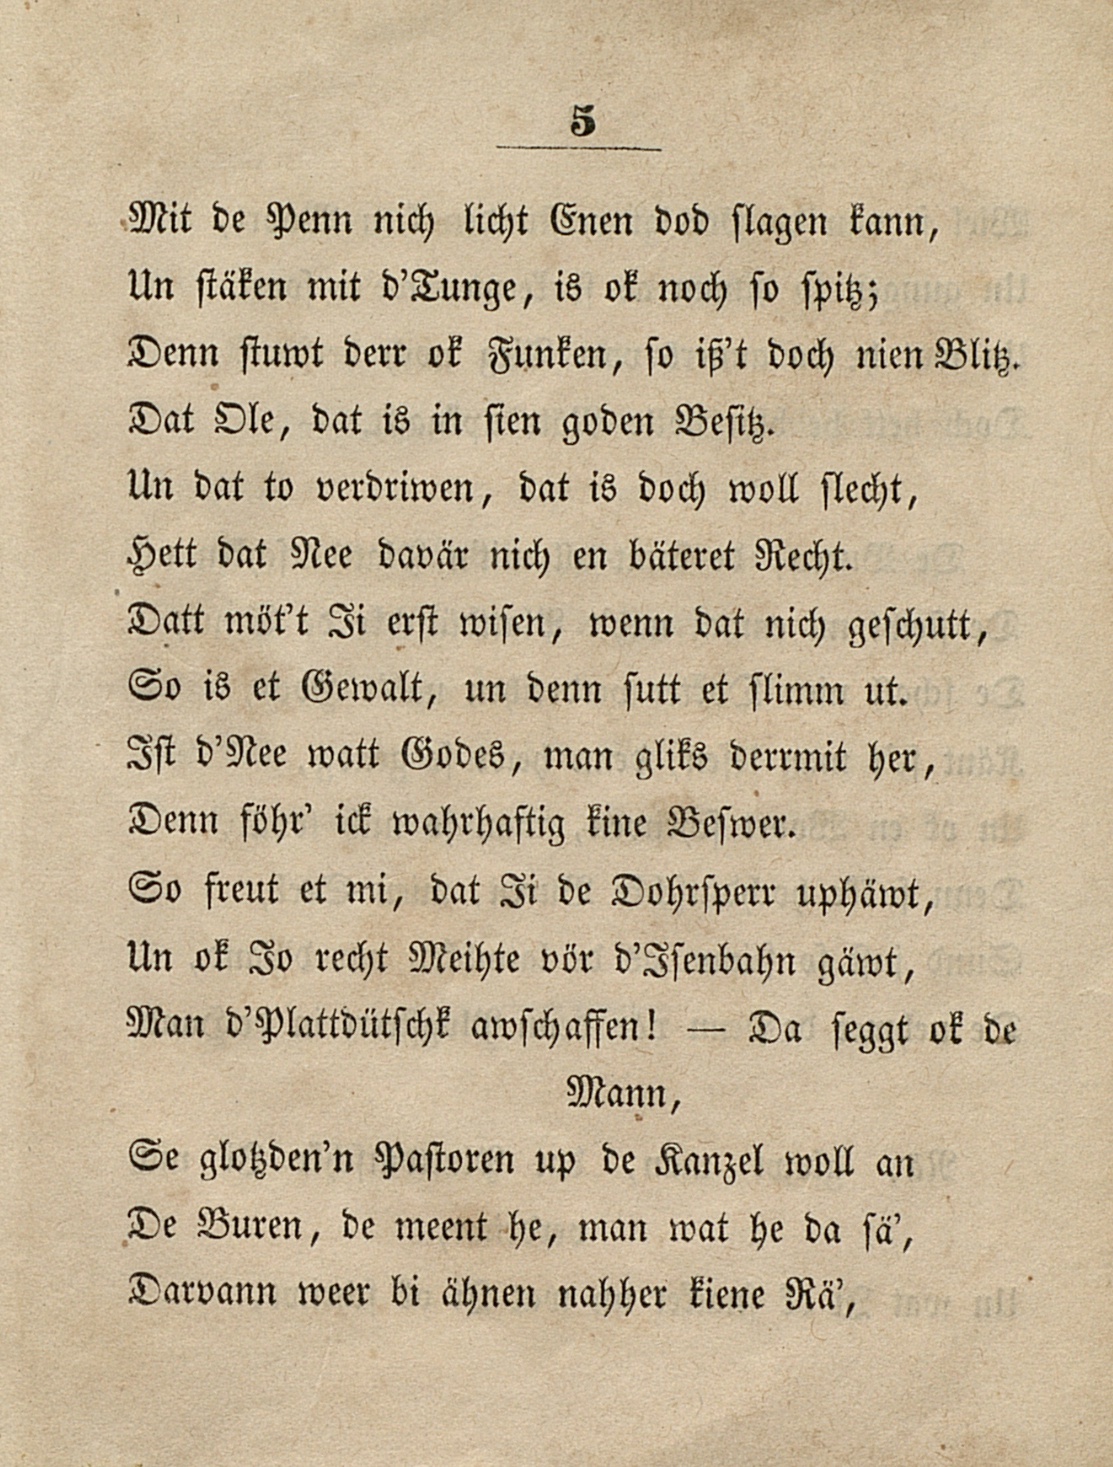 5
Mit de Penn nich licht Enen dod slagen kann,
Un stäken mit d'Tunge, is ok noch so spitz;
Denn stuwt derr ok Funken, so iß't doch nien Blitz.
Dat Ole, dat is in sien goden Besitz.
Un dat to verdriwen, dat is doch woll slecht,
Hett dat Nee davär nich en bäteret Recht.
Datt möt't Ji erst wisen, wenn dat nich geschutt,
So is et Gewalt, un denn sutt et slimm ut.
Ist d'Nee watt Godes, man gliks derrmit her,
Denn föhr' ick wahrhaftig kine Beswer.
So freut et mi, dat Ji de Dohrsperr uphäwt,
Un ok Jo recht Meihte vör d'Isenbahn gäwt,
Man d'Plattdütschk awschaffen! — Da seggt ok de
Mann,
Se glotzden'n Pastoren up de Kanzel woll an
De Buren, de meent he, man wat he da sä',
Darvann weer bi ähnen nahher kiene Rä',